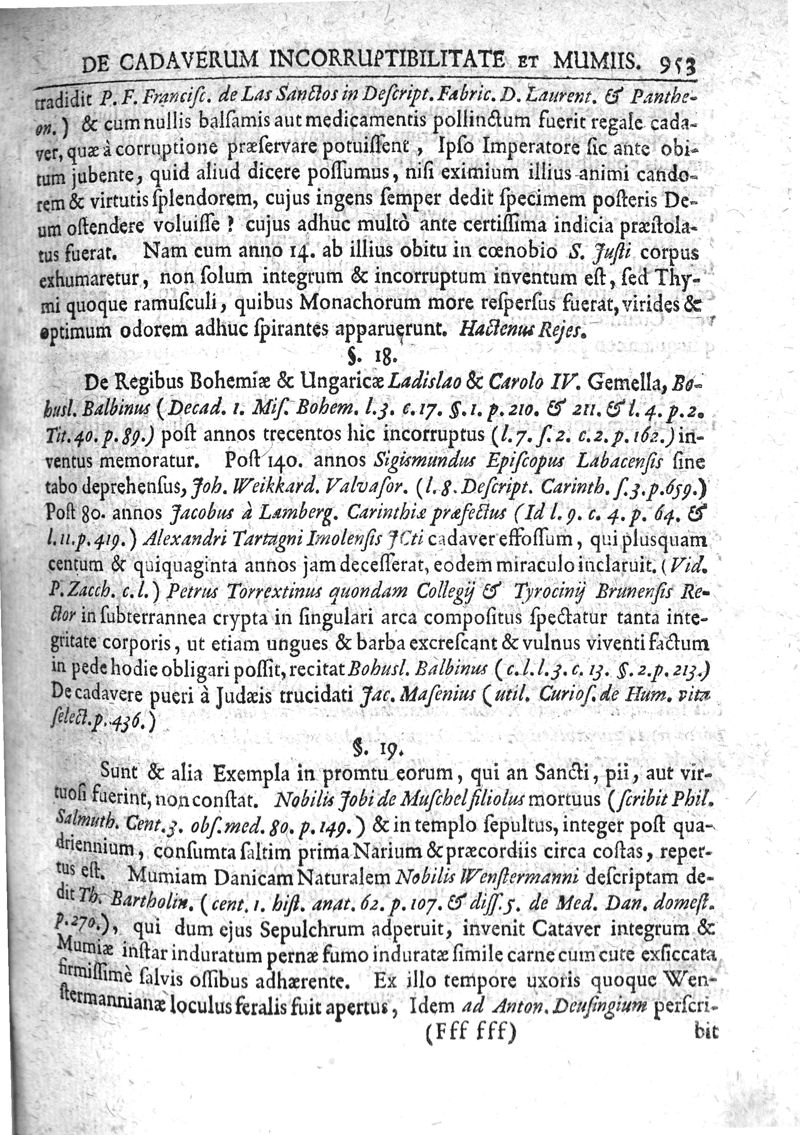 DE CADAVERUM INCORRUPTIBILITATE ET MUMIIS. 953
tradidit P. F. Franciſc. de Las Sanctos in Deſcript. Fabric. D. Laurent. & Panthe-
on.) & cum nullis balſamis aut medicamentis pollinctum fuerit regale cada-
ver, quæ à corruptione præſervare potuiſſent, Ipſo Imperatore ſic ante obi-
tum jubente, quid aliud dicere poſſumus, niſi eximium illius animi cando-
rem & virtutis ſplendorem, cujus ingens ſemper dedit ſpecimem poſteris De-
um oſtendere voluiſſe? cujus adhuc multò ante certiſſima indicia præſtola-
tus fuerat. Nam cum anno 14. ab illius obitu in cœnobio S. Juſti corpus
exhumaretur, non ſolum integrum & incorruptum inventum eſt, ſed Thy-
mi quoque ramuſculi, quibus Monachorum more reſperſus fuerat, virides &
optimum odorem adhuc ſpirantes apparuerunt. Hactenus Rejes.
§. 18.
De Regibus Bohemiæ & Ungaricæ Ladislao & Carolo IV. Gemella, Bo-
husl. Balbinus (Decad. 1. Miſ. Bohem. l.3. c.17. §.1. p.210. & 211. & l. 4. p.2.
Tit.40. p.89.) poſt annos trecentos hic incorruptus (l.7. ſ.2. c.2. p.162.) in-
ventus memoratur. Poſt 140. annos Sigismundus Epiſcopus Labacenſis ſine
tabo deprehenſus, Joh. Weikkard. Valvaſor. (l.8. Deſcript. Carinth. ſ.3. p.659.)
Poſt 80. annos Jacobus à Lamberg. Carinthiæ præfectus (Id l. 9. c. 4. p. 64. &
l.11. p.419.) Alexandri Tartagni Imolenſis JCti cadaver effoſſum, qui plusquam
centum & quiquaginta annos jam deceſſerat, eodem miraculo inclaruit. (Vid.
P. Zacch. c. l.) Petrus Torrextinus quondam Collegij & Tyrocinij Brunenſis Re-
ctor in ſubterrannea crypta in ſingulari arca compoſitus ſpectatur tanta inte-
gritate corporis, ut etiam ungues & barba excreſcant & vulnus viventi factum
in pede hodie obligari poſſit, recitat Bohusl. Balbinus (c.l.l.3. c. 13. §.2. p.213.)
De cadavere pueri à Judæis trucidati Jac. Maſenius (util. Curioſ. de Hum. vita
ſelect. p.436.)
§. 19.
Sunt & alia Exempla in promtu eorum, qui an Sancti, pii, aut vir-
tuoſi fuerint, non conſtat. Nobilis Jobi de Muſchel filiolus mortuus (ſcribit Phil.
Salmuth. Cent.3. obſ. med. 80. p.149.) & in templo ſepultus, integer poſt qua-
driennium, conſumta ſaltim prima Narium & præcordiis circa coſtas, reper-
tus eſt. Mumiam Danicam Naturalem Nobilis Wenſtermanni deſcriptam de-
dit Th. Bartholin. (cent. 1. hiſt. anat. 62. p.107. & diſſ. 5. de Med. Dan. domeſt.
p.270.), qui dum ejus Sepulchrum adperuit, invenit Cataver integrum &
Mumiæ inſtar induratum pernæ fumo induratæ ſimile carne cum cute exſiccata
firmiſſimè ſalvis oſſibus adhærente. Ex illo tempore uxoris quoque Wen-
ſtermannianæ loculus feralis fuit apertus, Idem ad Anton. Deuſingium perſcri-
(Fff fff) bit